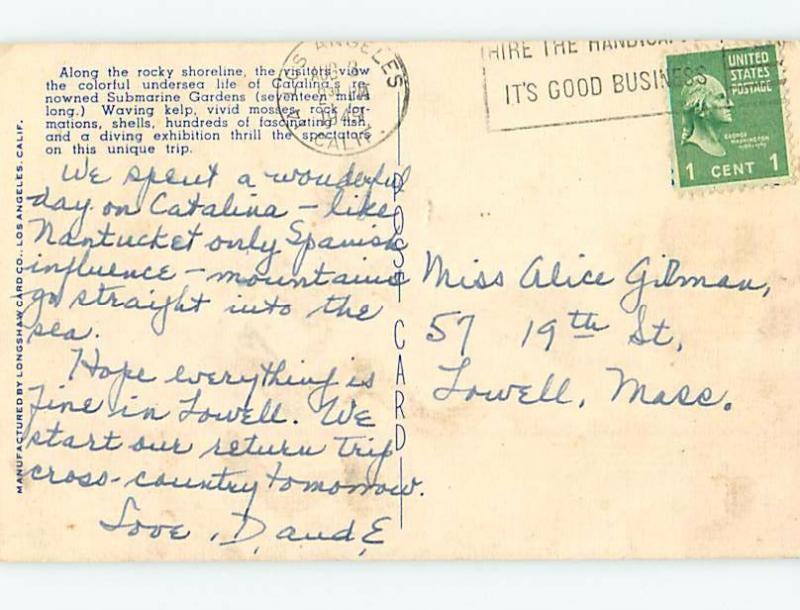 Along the rocky shoreline, the visitors view
the colorful undersea life of Catalina's re-
nowned Submarine Gardens (seventeen miles
long.) Waving kelp, vivid mosses, rock for-
mations, shells, hundreds of fascinating fish,
and a diving exhibition thrill the spectators
on this unique trip.
MANUFACTURED BY LONGSHAW CARD CO., LOS ANGELES, CALIF.
We spent a wonderful
day on Catalina – like
Nantucket only Spanish
influence – mountains
go straight into the
sea.
Hope everything is
fine in Lowell. We
start our return trip
cross-country tomorrow.
Love, D and E
POST CARD
LOS ANGELES
CALIF.
HIRE THE HANDICAPPED
IT'S GOOD BUSINESS
UNITED
STATES
POSTAGE
GEORGE
WASHINGTON
1 CENT 1
Miss Alice Gilman,
57 19th St,
Lowell, Mass.